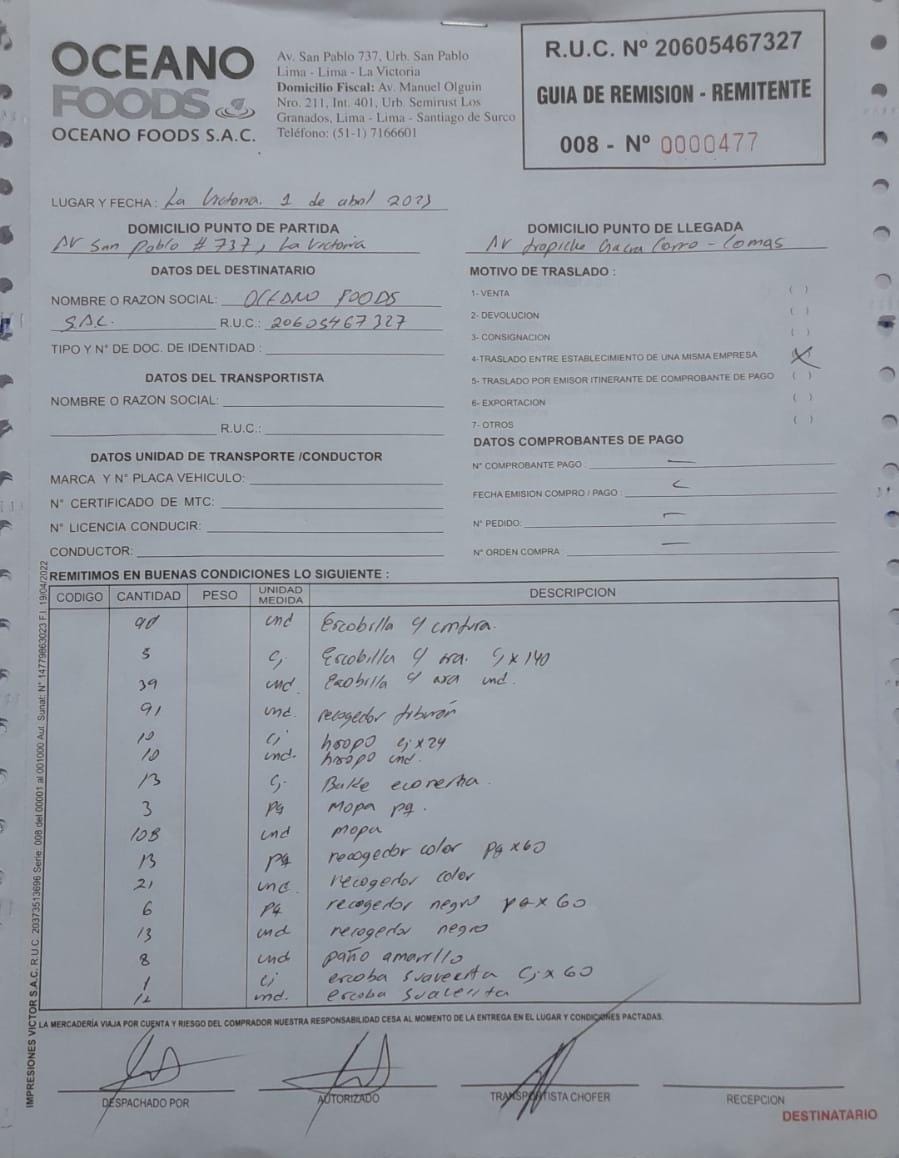 OCEANO
FOODS
OCEANO FOODS S.A.C.
Av. San Pablo 737, Urb. San Pablo
Lima - Lima - La Victoria
Domicilio Fiscal: Av. Manuel Olguin
Nro. 211, Int. 401, Urb. Semirust Los
Granados, Lima - Lima - Santiago de Surco
Teléfono: (51-1) 7166601
R.U.C. Nº 20605467327
GUIA DE REMISION - REMITENTE
008 - Nº 0000477
LUGAR Y FECHA : La Victoria. 1 de abril 2023
DOMICILIO PUNTO DE PARTIDA
AV San Pablo # 737, La Victoria
DOMICILIO PUNTO DE LLEGADA
AV trapiche Chacra Cerro - Comas
DATOS DEL DESTINATARIO
NOMBRE O RAZON SOCIAL: OCEANO FOODS
S.A.C. R.U.C.: 20605467327
TIPO Y Nº DE DOC. DE IDENTIDAD :
DATOS DEL TRANSPORTISTA
NOMBRE O RAZON SOCIAL:
R.U.C.:
DATOS UNIDAD DE TRANSPORTE /CONDUCTOR
MARCA Y Nº PLACA VEHICULO:
Nº CERTIFICADO DE MTC:
Nº LICENCIA CONDUCIR:
CONDUCTOR:
MOTIVO DE TRASLADO :
1- VENTA ( )
2- DEVOLUCION ( )
3- CONSIGNACION ( )
4-TRASLADO ENTRE ESTABLECIMIENTO DE UNA MISMA EMPRESA X
5- TRASLADO POR EMISOR ITINERANTE DE COMPROBANTE DE PAGO ( )
6- EXPORTACION ( )
7- OTROS ( )
DATOS COMPROBANTES DE PAGO
Nº COMPROBANTE PAGO : —
FECHA EMISION COMPRO / PAGO :
Nº PEDIDO: —
Nº ORDEN COMPRA: —
REMITIMOS EN BUENAS CONDICIONES LO SIGUIENTE :
CODIGO CANTIDAD PESO UNIDAD MEDIDA DESCRIPCION
90 und Escobilla
5 cj Escobilla c/ asa. cj x 140
39 und Escobilla c/ asa und.
91 und. recogedor tiburón
10 cj hisopo cj x 24
10 und. hisopo und.
13 cj. Balde
3 pq Mopa pq.
108 und mopa
13 pq recogedor color pq x 60
21 und. recogedor color
6 pq recogedor negro pq x 60
13 und recogedor negro
8 und paño amarillo
1 cj escoba suavecita cj x 60
12 und. escoba suavecita
LA MERCADERÍA VIAJA POR CUENTA Y RIESGO DEL COMPRADOR NUESTRA RESPONSABILIDAD CESA AL MOMENTO DE LA ENTREGA EN EL LUGAR Y CONDICIONES PACTADAS.
DESPACHADO POR
AUTORIZADO
TRANSPORTISTA CHOFER
RECEPCION
DESTINATARIO
IMPRESIONES VICTOR S.A.C. R.U.C. 20373513696 Serie: 008 del 00001 al 001000 Aut. Sunat: Nº 14779863023 F.I. 19/04/2022